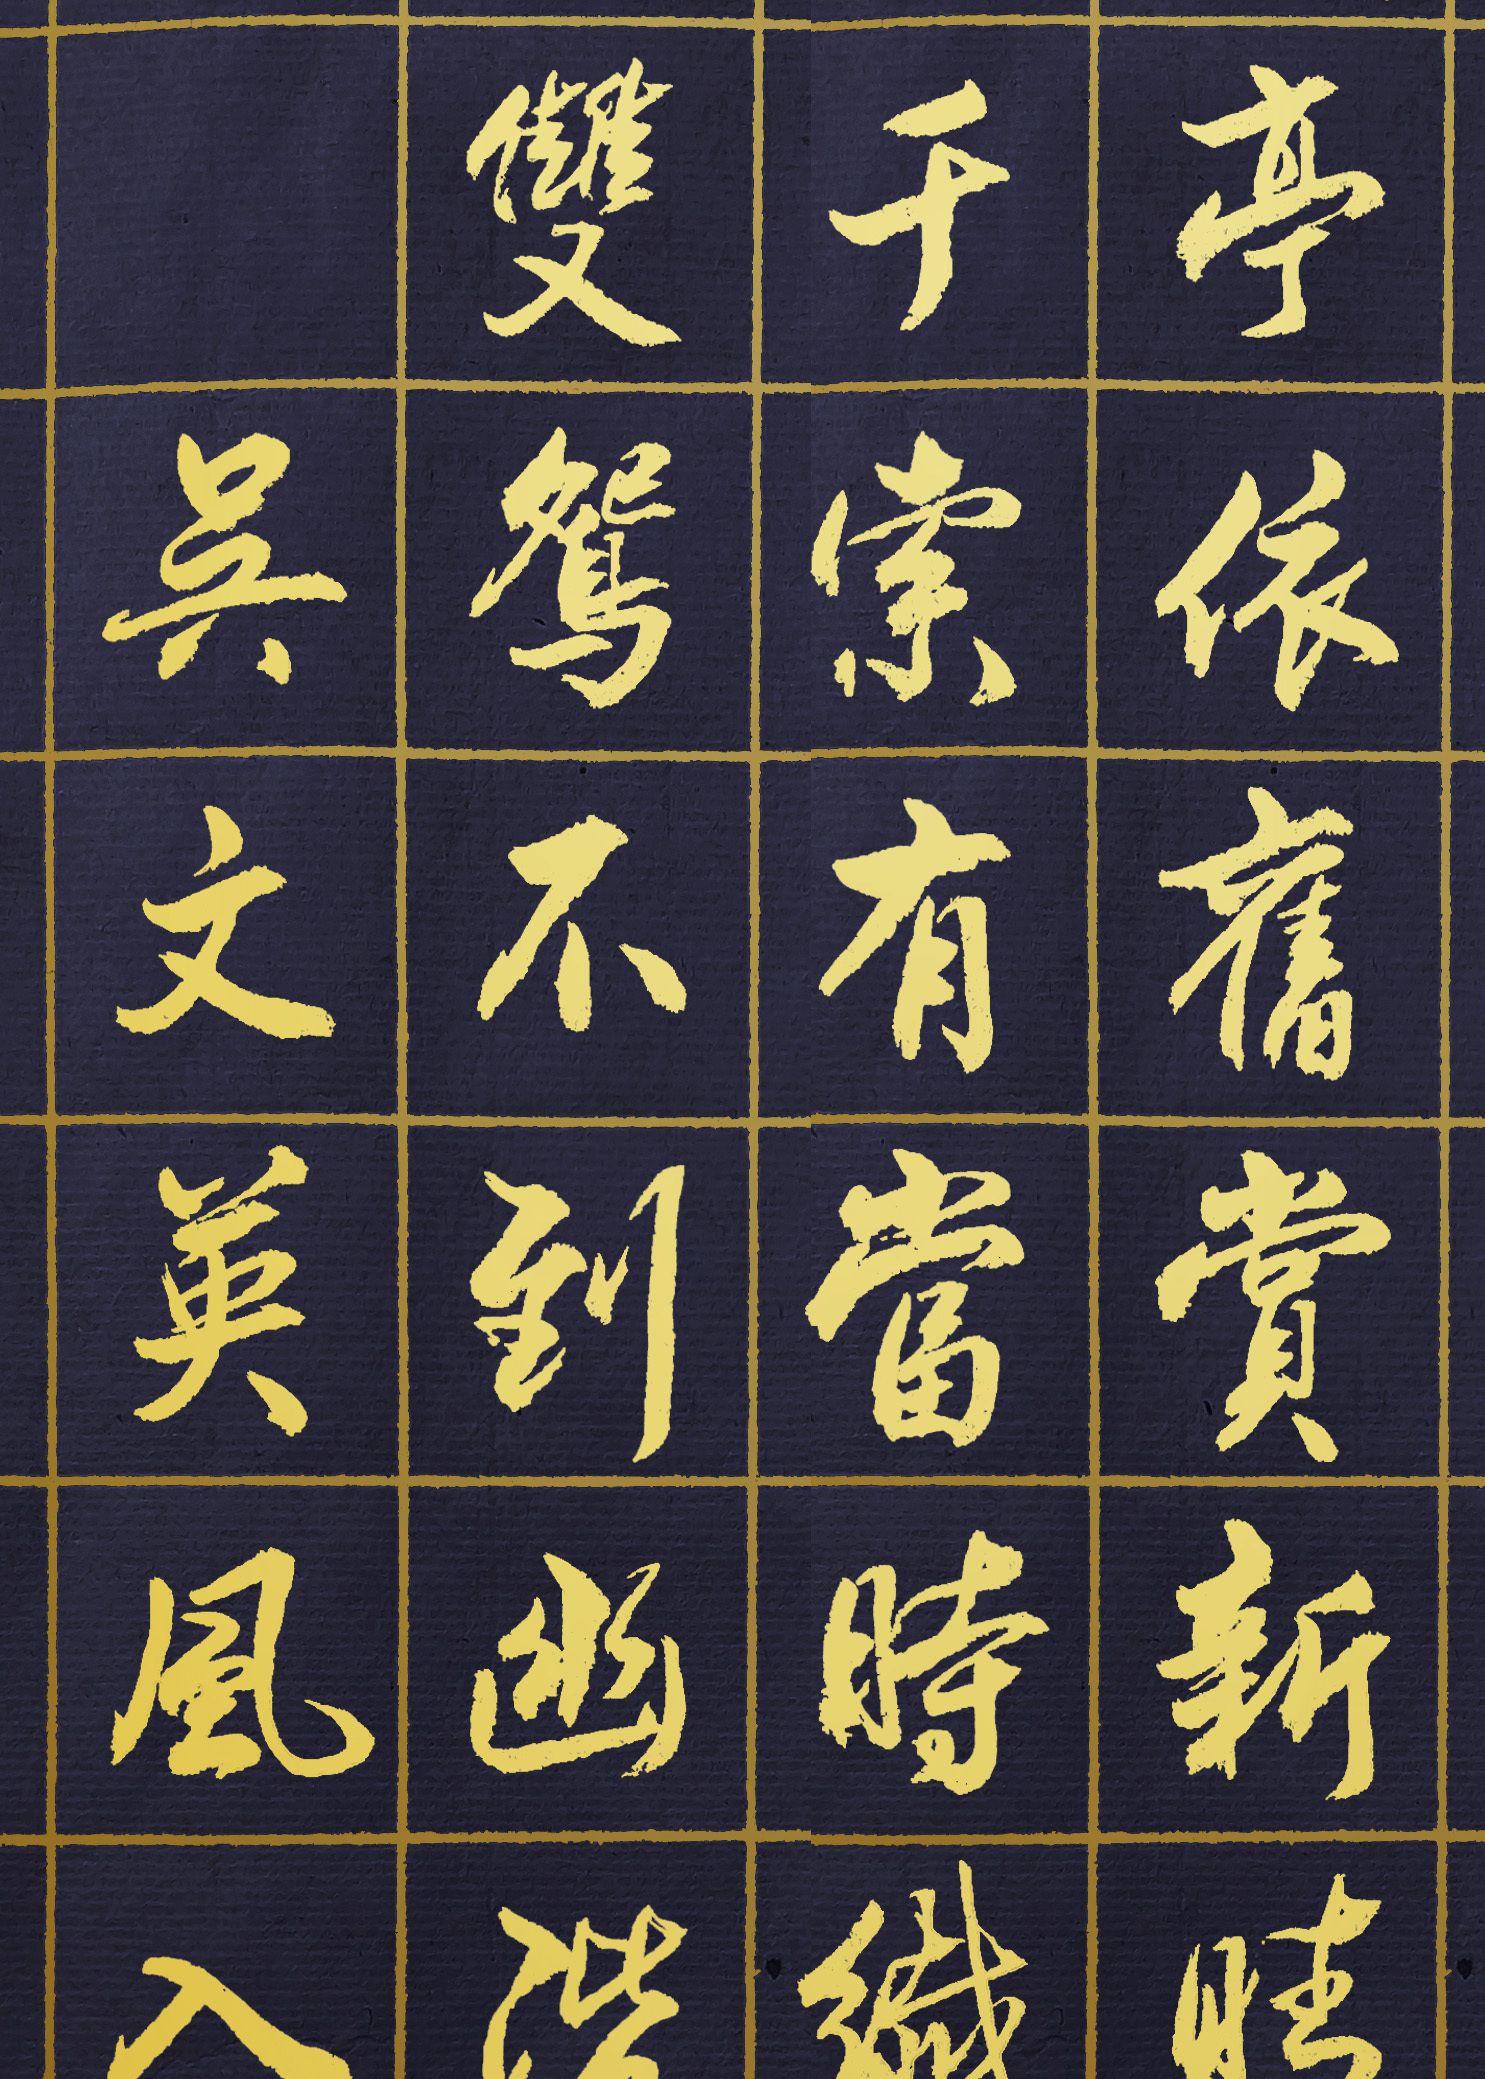 亭依舊賞新晴
千索有當時纖
雙鴛不到幽階
吳文英風入